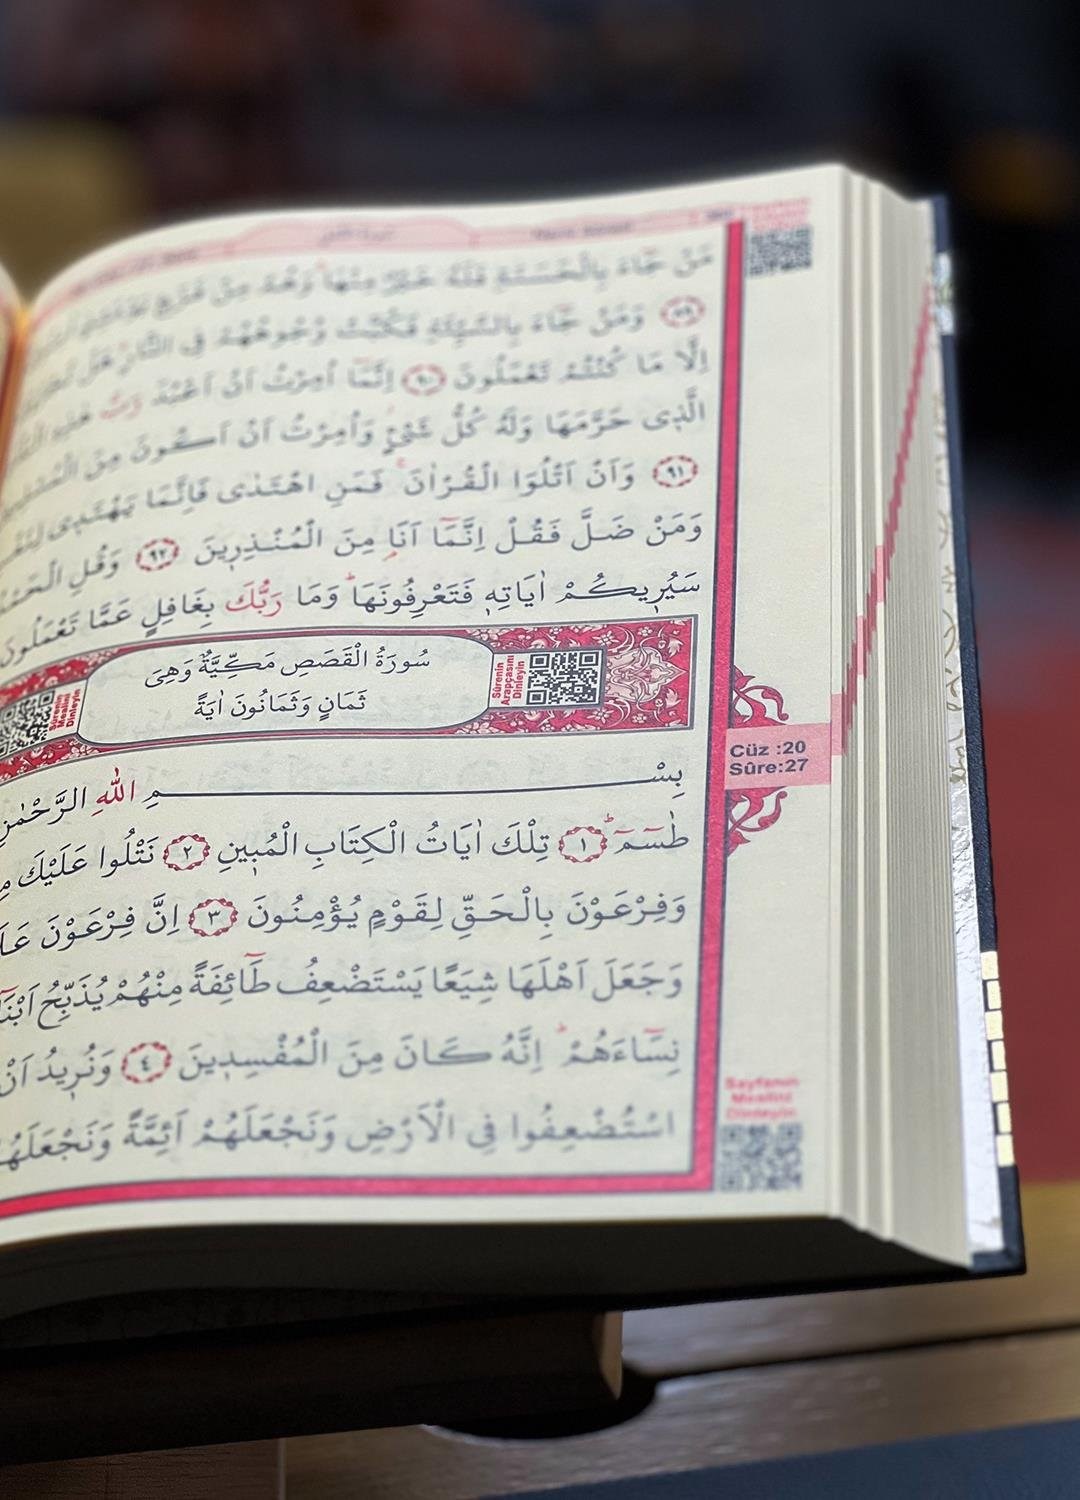 مَنْ جَٓاءَ بِالْحَسَنَةِ فَلَهُ خَيْرٌ مِنْهَا وَهُمْ مِنْ فَزَعٍ
﴿٨٩﴾ وَمَنْ جَٓاءَ بِالسَّيِّئَةِ فَكُبَّتْ وُجُوهُهُمْ فِى النَّارِ هَلْ
اِلَّا مَا كُنْتُمْ تَعْمَلُونَ ﴿٩٠﴾ اِنَّمَٓا اُمِرْتُ اَنْ اَعْبُدَ رَبَّ هٰذِهِ
الَّذ۪ى حَرَّمَهَا وَلَهُ كُلُّ شَىْءٍ وَاُمِرْتُ اَنْ اَكُونَ مِنَ
﴿٩١﴾ وَاَنْ اَتْلُوَا الْقُرْاٰنَ فَمَنِ اهْتَدٰى فَاِنَّمَا يَهْتَد۪ى
وَمَنْ ضَلَّ فَقُلْ اِنَّمَٓا اَنَا۬ مِنَ الْمُنْذِر۪ينَ ﴿٩٢﴾ وَقُلِ
سَيُر۪يكُمْ اٰيَاتِه۪ فَتَعْرِفُونَهَا وَمَا رَبُّكَ بِغَافِلٍ عَمَّا تَعْمَلُونَ
سُورَةُ الْقَصَصِ مَكِّيَّةٌ وَهِىَ
ثَمَانٍ وَثَمَانُونَ اٰيَةً
Sûrenin Arapçasını Dinleyin
Sûrenin Mealini Dinleyin
Cüz :20
Sûre:27
بِسْمِ اللّٰهِ الرَّحْمٰنِ
طٰسٓمٓ ﴿١﴾ تِلْكَ اٰيَاتُ الْكِتَابِ الْمُب۪ينِ ﴿٢﴾ نَتْلُوا عَلَيْكَ
وَفِرْعَوْنَ بِالْحَقِّ لِقَوْمٍ يُؤْمِنُونَ ﴿٣﴾ اِنَّ فِرْعَوْنَ
وَجَعَلَ اَهْلَهَا شِيَعًا يَسْتَضْعِفُ طَٓائِفَةً مِنْهُمْ يُذَبِّحُ
نِسَٓاءَهُمْ اِنَّهُ كَانَ مِنَ الْمُفْسِد۪ينَ ﴿٤﴾ وَنُر۪يدُ اَنْ
اسْتُضْعِفُوا فِى الْاَرْضِ وَنَجْعَلَهُمْ اَئِمَّةً وَنَجْعَلَهُمُ
Sayfanın
Mealini
Dinleyin